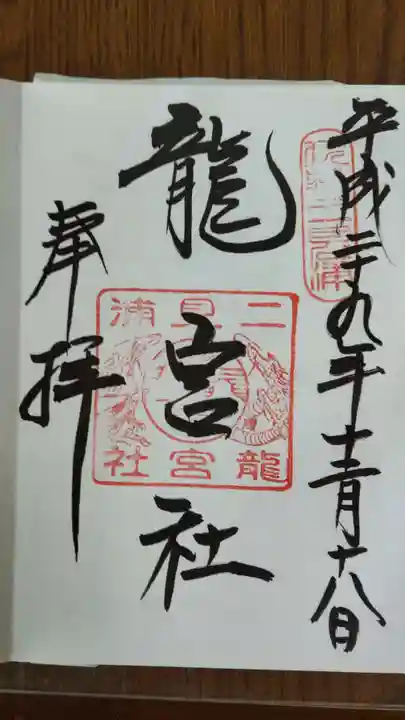 平成二十九年十二月十八日
伊勢二見浦
龍宮社
二見浦
龍宮社
奉拝